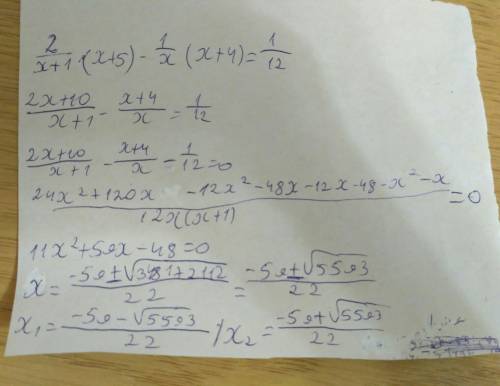 2/(x+1) · (x+5) - 1/x (x+4) = 1/12
(2x+10)/(x+1) - (x+4)/x = 1/12
(2x+10)/(x+1) - (x+4)/x - 1/12 = 0
(24x² + 120x - 12x² - 48x - 12x - 48 - x² - x)/(12x(x+1)) = 0
11x² + 59x - 48 = 0
x = (-59 ± √(3481 + 2112))/22 = (-59 ± √5593)/22
x₁ = (-59 - √5593)/22 ; x₂ = (-59 + √5593)/22